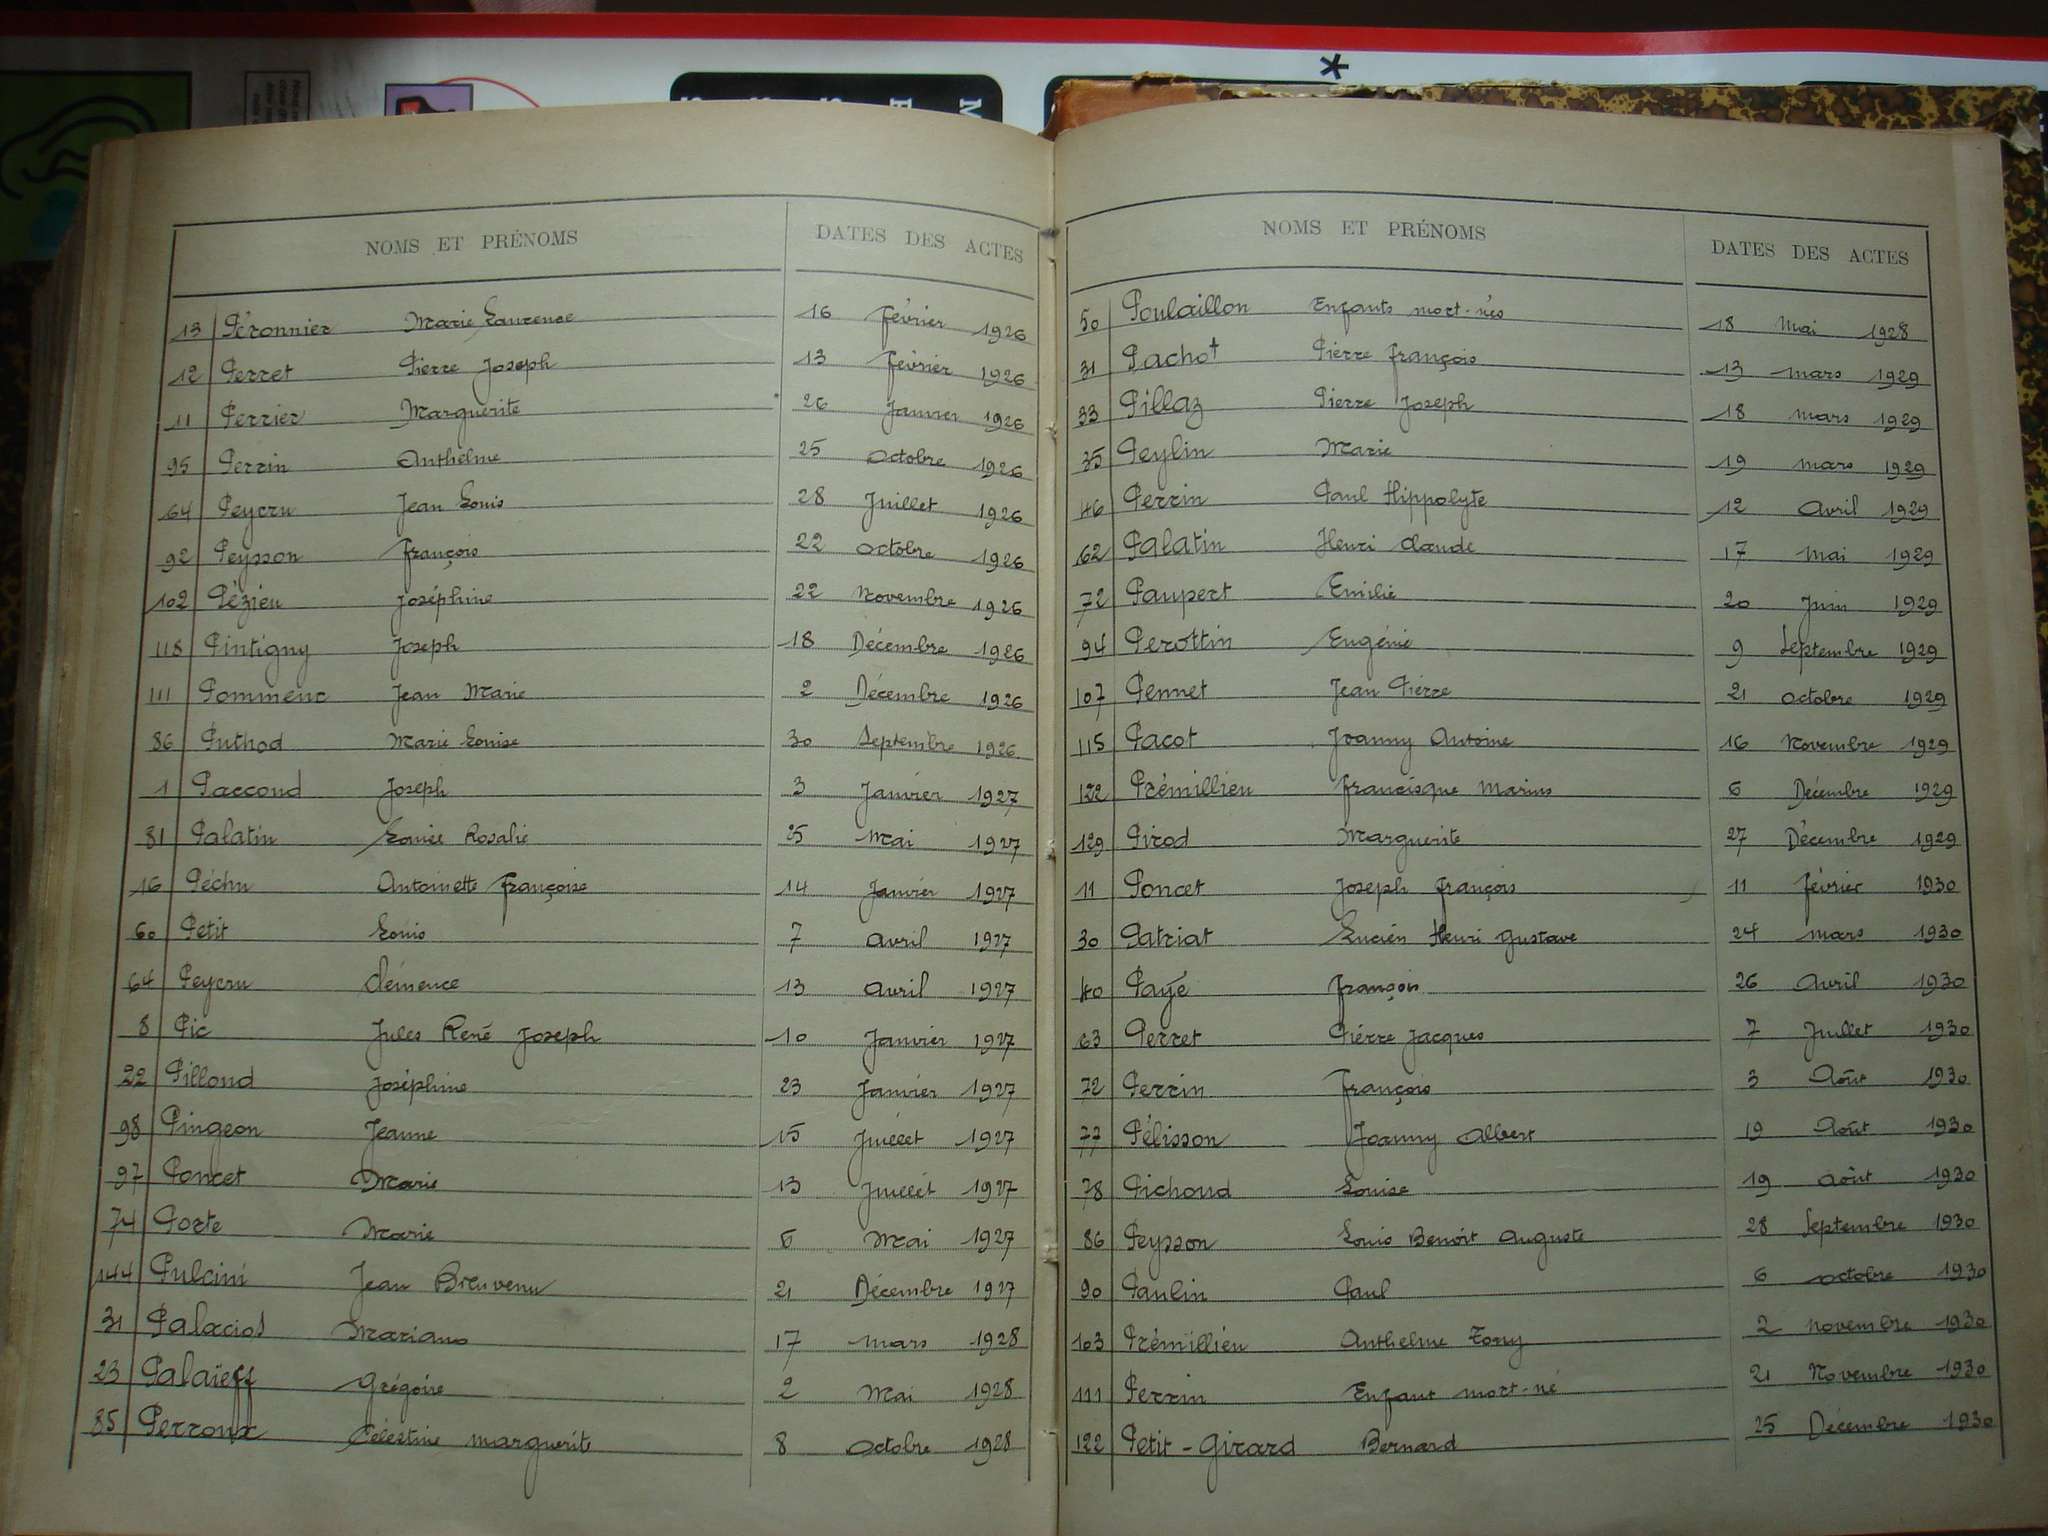 NOMS ET PRÉNOMS DATES DES ACTES
13 Péronnier Marie Laurence 16 Février 1926
12 Perret Pierre Joseph 13 Février 1926
11 Perrier Marguerite 26 Janvier 1926
95 Perrin Anthelme 25 Octobre 1926
64 Peycru Jean Louis 28 Juillet 1926
92 Peysson François 22 Octobre 1926
102 Pézieu Joséphine 22 Novembre 1926
118 Pintigny Joseph 18 Décembre 1926
111 Jean Marie 2 Décembre 1926
86 Puthod Marie Louise 30 Septembre 1926
1 Paccoud Joseph 3 Janvier 1927
81 Palatin Rosalie 25 Mai 1927
16 Péchu Antoinette Françoise 14 Janvier 1927
60 Petit Louis 7 Avril 1927
64 Peycru Clémence 13 Avril 1927
8 Pic Jules René Joseph 10 Janvier 1927
22 Pilloud Joséphine 23 Janvier 1927
98 Pingeon Jeanne 15 Juillet 1927
97 Poncet Marie 13 Juillet 1927
74 Porte Marie 6 Mai 1927
144 Pulcini Jean Bienvenu 21 Décembre 1927
31 Palacios Mariano 17 Mars 1928
23 Palaïeff Grégoire 2 Mai 1928
85 Perroux Célestine Marguerite 8 Octobre 1928
NOMS ET PRÉNOMS DATES DES ACTES
50 Poulaillon Enfants mort-nés 18 Mai 1928
31 Pachot Pierre François 13 Mars 1929
33 Pillaz Pierre Joseph 18 Mars 1929
35 Peylin Marie 19 Mars 1929
46 Perrin Paul Hippolyte 12 Avril 1929
62 Palatin Henri Claude 17 Mai 1929
72 Paupert Emilie 20 Juin 1929
94 Perottin Eugénie 9 Septembre 1929
107 Pennet Jean Pierre 21 Octobre 1929
115 Pacot Joanny Antoine 16 Novembre 1929
122 Prémillieu Francisque Marius 6 Décembre 1929
129 Pirod Marguerite 27 Décembre 1929
11 Poncet Joseph François 11 Février 1930
30 Patriat Lucien Henri Gustave 24 Mars 1930
40 Payé François 26 Avril 1930
63 Perret Pierre Jacques 7 Juillet 1930
72 Perrin François 3 Août 1930
77 Pélisson Joanny Albert 19 Août 1930
78 Pichoud Louise 19 Août 1930
86 Peysson Louis Benoit Auguste 28 Septembre 1930
90 Paulin Paul 6 Octobre 1930
103 Prémillieu Anthelme Tony 2 Novembre 1930
111 Perrin Enfant mort-né 21 Novembre 1930
122 Petit-Girard Bernard 25 Décembre 1930